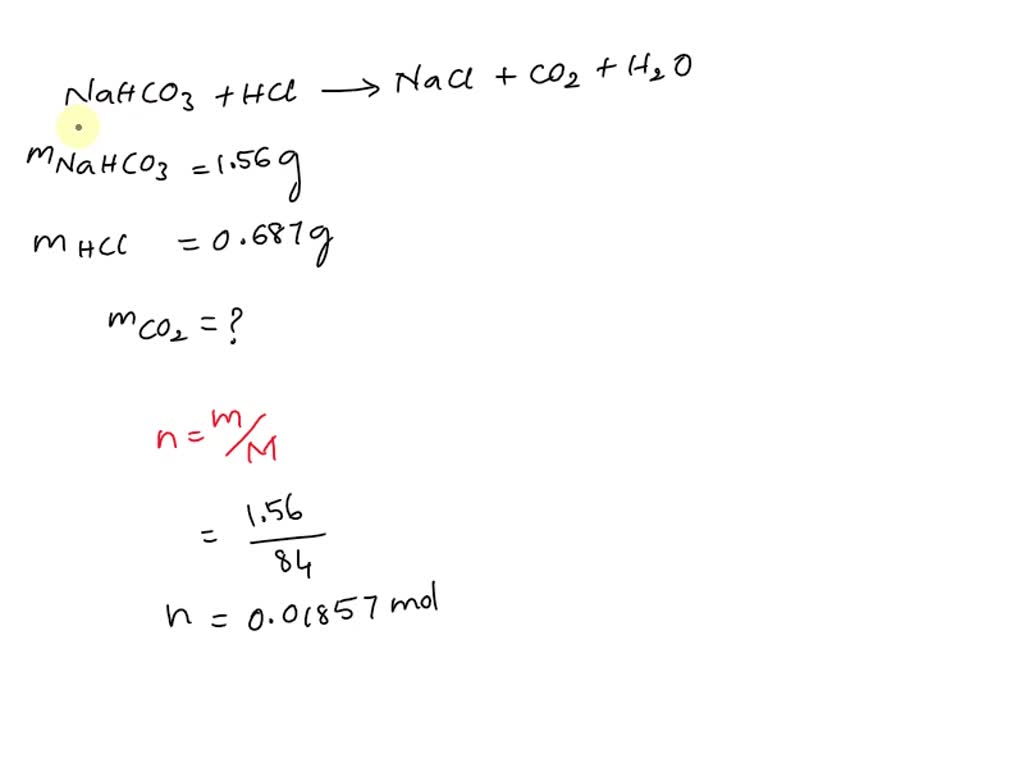 NaHCO3 + HCl → NaCl + CO2 + H2O
mNaHCO3 = 1.56g
mHCl = 0.687g
mCO2 = ?
n = m/M
= 1.56/84
n = 0.01857 mol